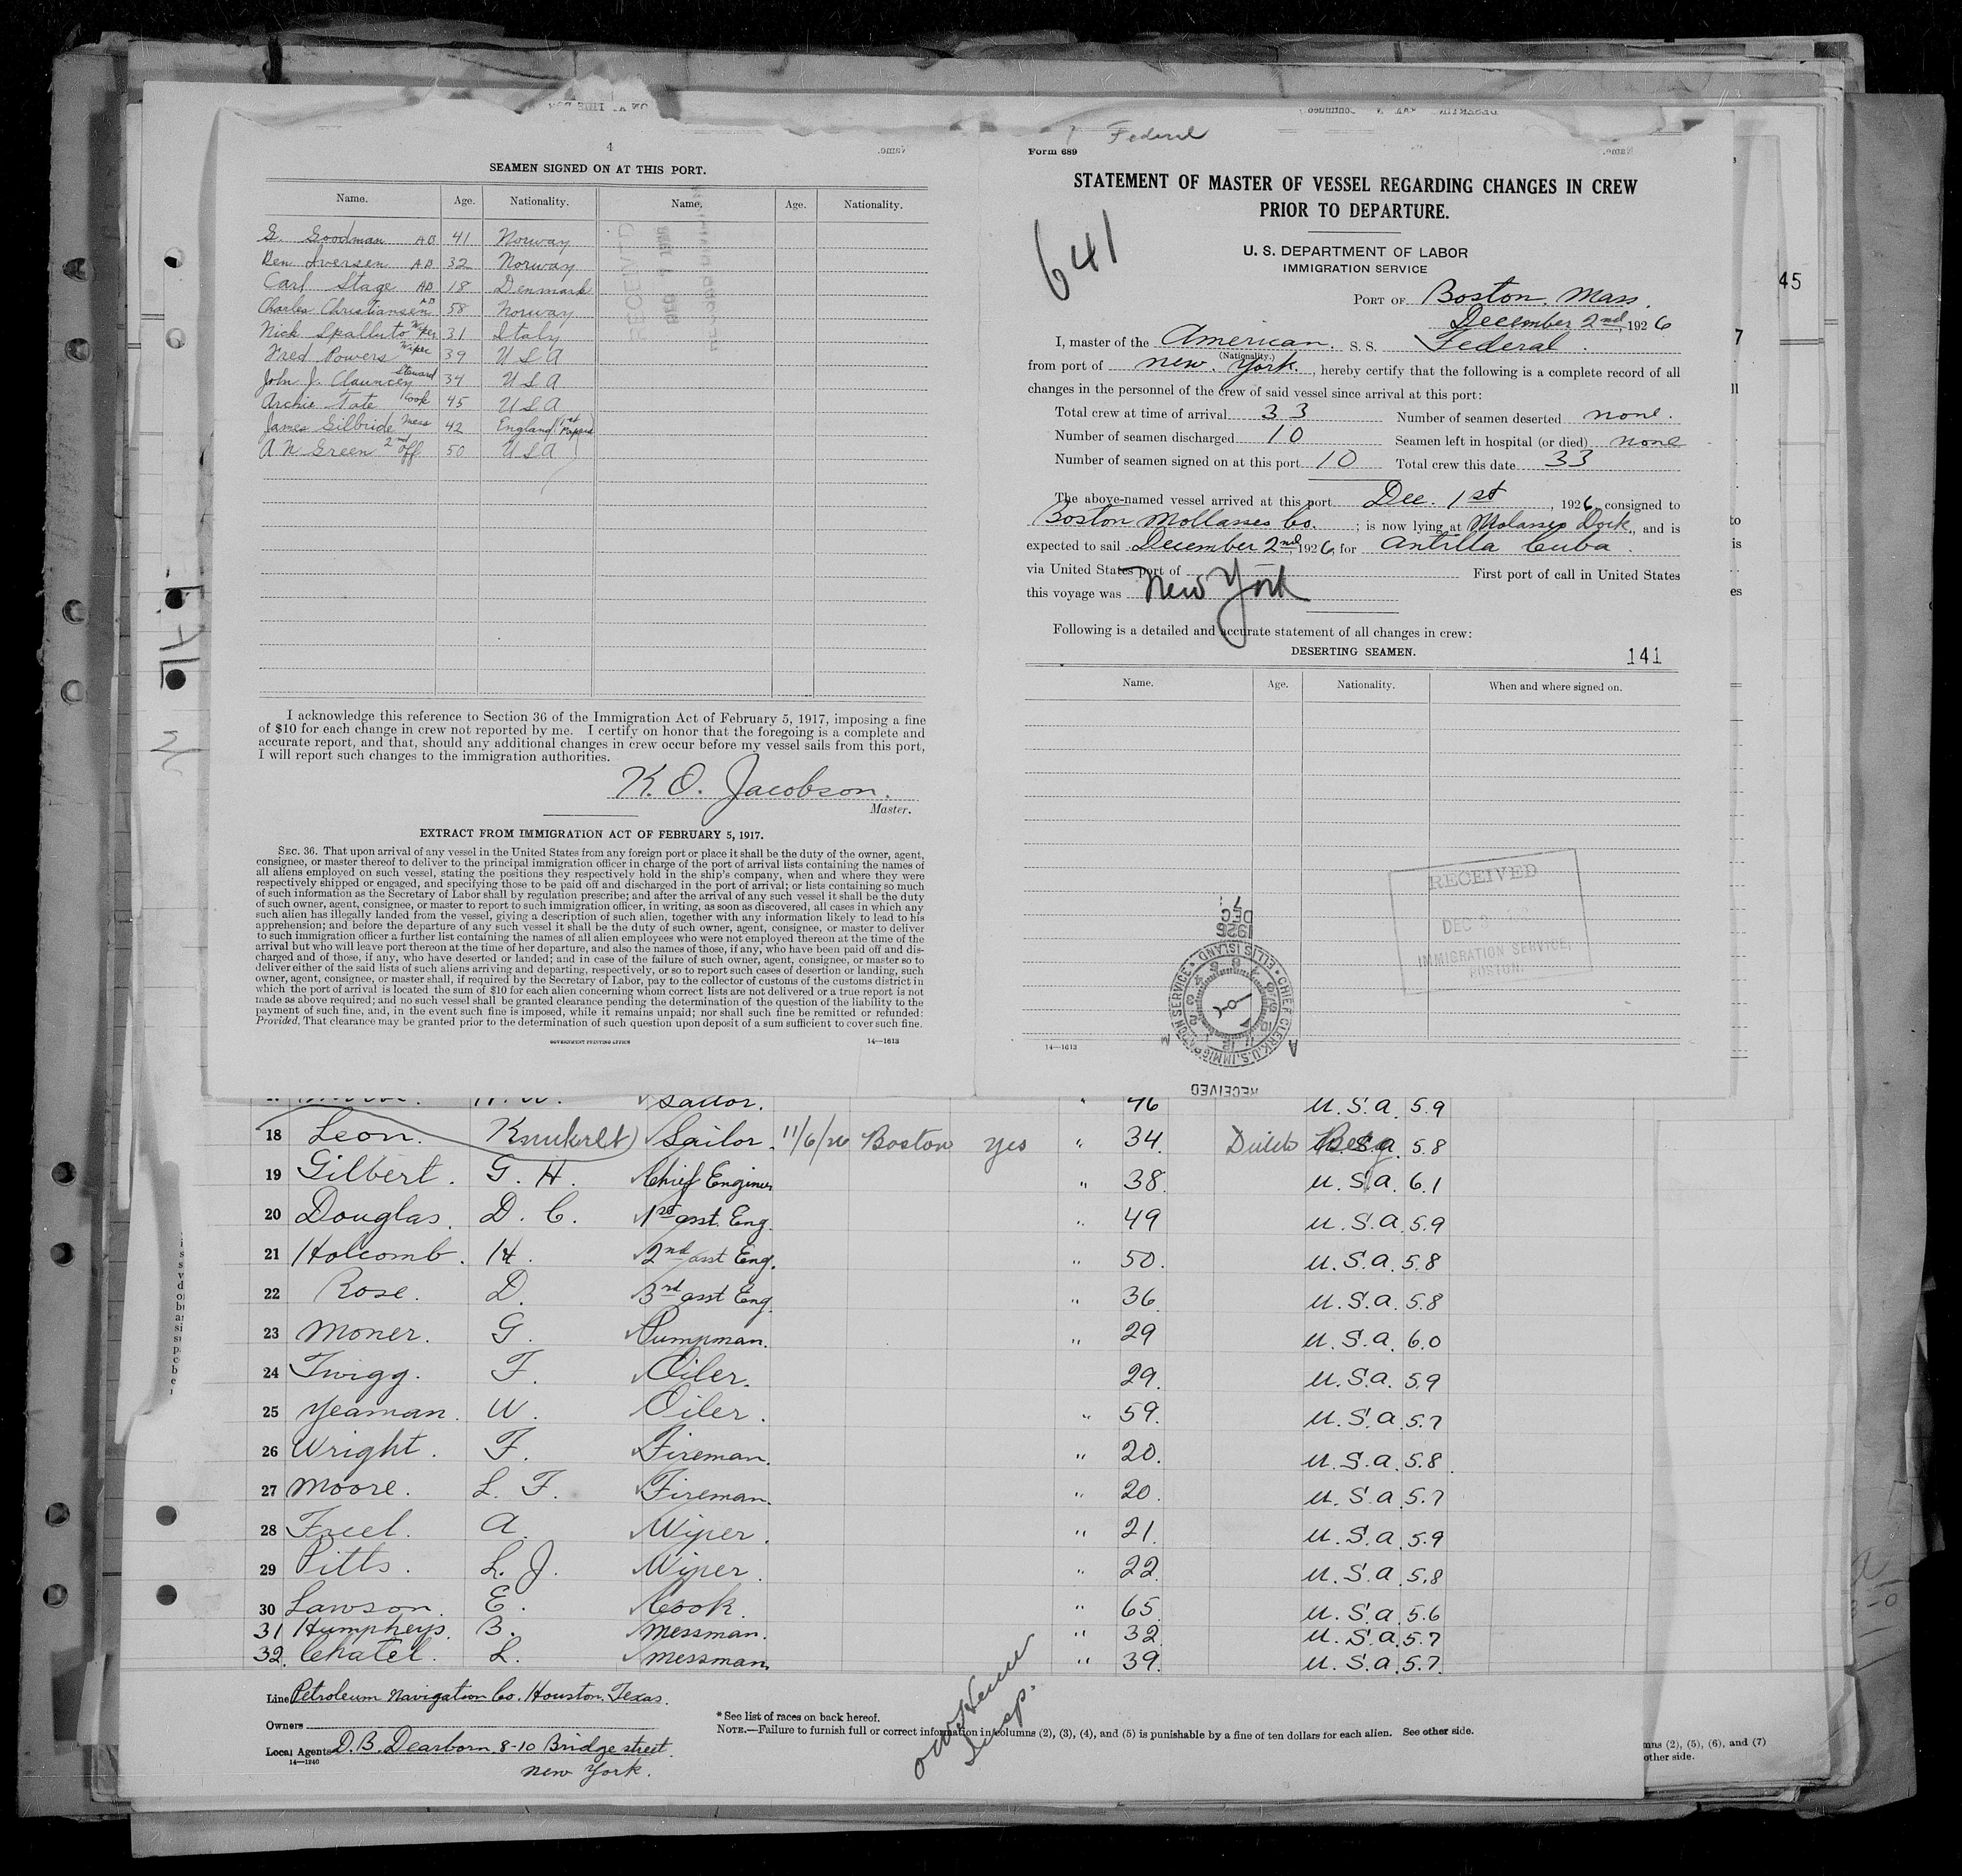 4
SEAMEN SIGNED ON AT THIS PORT.
Name. Age. Nationality. Name. Age. Nationality.
G. Goodman AB 41 Norway
Ben Iversen AB 32 Norway
Carl Stage AB 18 Denmark
Charles Christiansen AB 58 Norway
Nick Spalluto Wiper 31 Italy
Fred Powers Wiper 39 U S A
John J. Clauncey Steward 34 U S A
Archie Tate Cook 45 U S A
James Gilbride Mess 42 England (1st Papers)
A N Green 2nd Off 50 U S A
I acknowledge this reference to Section 36 of the Immigration Act of February 5, 1917, imposing a fine
of $10 for each change in crew not reported by me. I certify on honor that the foregoing is a complete and
accurate report, and that, should any additional changes in crew occur before my vessel sails from this port,
I will report such changes to the immigration authorities.
K. O. Jacobson.
Master.
EXTRACT FROM IMMIGRATION ACT OF FEBRUARY 5, 1917.
SEC. 36. That upon arrival of any vessel in the United States from any foreign port or place it shall be the duty of the owner, agent,
consignee, or master thereof to deliver to the principal immigration officer in charge of the port of arrival lists containing the names of
all aliens employed on such vessel, stating the positions they respectively hold in the ship's company, when and where they were
respectively shipped or engaged, and specifying those to be paid off and discharged in the port of arrival; or lists containing so much
of such information as the Secretary of Labor shall by regulation prescribe; and after the arrival of any such vessel it shall be the duty
of such owner, agent, consignee, or master to report to such immigration officer, in writing, as soon as discovered, all cases in which any
such alien has illegally landed from the vessel, giving a description of such alien, together with any information likely to lead to his
apprehension; and before the departure of any such vessel it shall be the duty of such owner, agent, consignee, or master to deliver
to such immigration officer a further list containing the names of all alien employees who were not employed thereon at the time of the
arrival but who will leave port thereon at the time of her departure, and also the names of those, if any, who have been paid off and dis-
charged and of those, if any, who have deserted or landed; and in case of the failure of such owner, agent, consignee, or master so to
deliver either of the said lists of such aliens arriving and departing, respectively, or so to report such cases of desertion or landing, such
owner, agent, consignee, or master shall, if required by the Secretary of Labor, pay to the collector of customs of the customs district in
which the port of arrival is located the sum of $10 for each alien concerning whom correct lists are not delivered or a true report is not
made as above required; and no such vessel shall be granted clearance pending the determination of the question of the liability to the
payment of such fine, and, in the event such fine is imposed, while it remains unpaid; nor shall such fine be remitted or refunded:
Provided, That clearance may be granted prior to the determination of such question upon deposit of a sum sufficient to cover such fine.
GOVERNMENT PRINTING OFFICE 14—1613
Federal
Form 689
STATEMENT OF MASTER OF VESSEL REGARDING CHANGES IN CREW
PRIOR TO DEPARTURE.
641
U. S. DEPARTMENT OF LABOR
IMMIGRATION SERVICE
PORT OF Boston. Mass.
December 2nd, 1926
I, master of the American. S. S. Federal.
(Nationality.)
from port of new. York., hereby certify that the following is a complete record of all
changes in the personnel of the crew of said vessel since arrival at this port:
Total crew at time of arrival 33 Number of seamen deserted none.
Number of seamen discharged 10 Seamen left in hospital (or died) none
Number of seamen signed on at this port 10 Total crew this date 33
The above-named vessel arrived at this port Dec. 1st, 1926, consigned to
Boston Mollasses Co.; is now lying at Molasses Dock, and is
expected to sail December 2nd 1926, for Antilla Cuba.
via United States port of First port of call in United States
this voyage was New York
Following is a detailed and accurate statement of all changes in crew:
DESERTING SEAMEN. 141
Name. Age. Nationality. When and where signed on.
RECEIVED
DEC
IMMIGRATION SERVICE,
BOSTON.
DEC 7
1926
CHIEF CLERK, U.S. IMMIGRATION SERVICE ELLIS ISLAND
RECEIVED
14—1613
45
Sailor. 46 U. S. A. 5.9
18 Leon. Knukelt Sailor. 11/6/26 Boston yes " 34. Dutch Belg. 5.8
19 Gilbert. G. H. Chief Engineer " 38. U. S. A. 6.1
20 Douglas. D. C. 1st asst. Eng. " 49 U. S. A. 5.9
21 Holcomb. H. 2nd asst Eng. " 50. U. S. A. 5.8
22 Rose. D. 3rd asst Eng. " 36 U. S. A. 5.8
23 Moner. G. Pumpman. " 29 U. S. A. 6.0
24 Twigg. F. Oiler. 29. U. S. A. 5.9
25 Yeaman. W. Oiler. " 59. U. S. A. 5.7
26 Wright. F. Fireman. " 20. U. S. A. 5.8
27 Moore. L. F. Fireman. " 20. U. S. A. 5.7
28 Freel. A. Wiper. " 21. U. S. A. 5.9
29 Pitts. L. J. Wiper. " 22. U. S. A. 5.8
30 Lawson. E. Cook. " 65. U. S. A. 5.6
31 Humpheys. B. Messman. " 32. U. S. A. 5.7
32. Chatel. L. Messman. " 39. U. S. A. 5.7.
Line Petroleum Navigation Co. Houston, Texas.
Owners
Local Agents D. B. Dearborn, 8-10 Bridge street.
New York.
14—1240
* See list of races on back hereof.
NOTE.—Failure to furnish full or correct information in columns (2), (3), (4), and (5) is punishable by a fine of ten dollars for each alien. See other side.
mns (2), (5), (6), and (7)
other side.